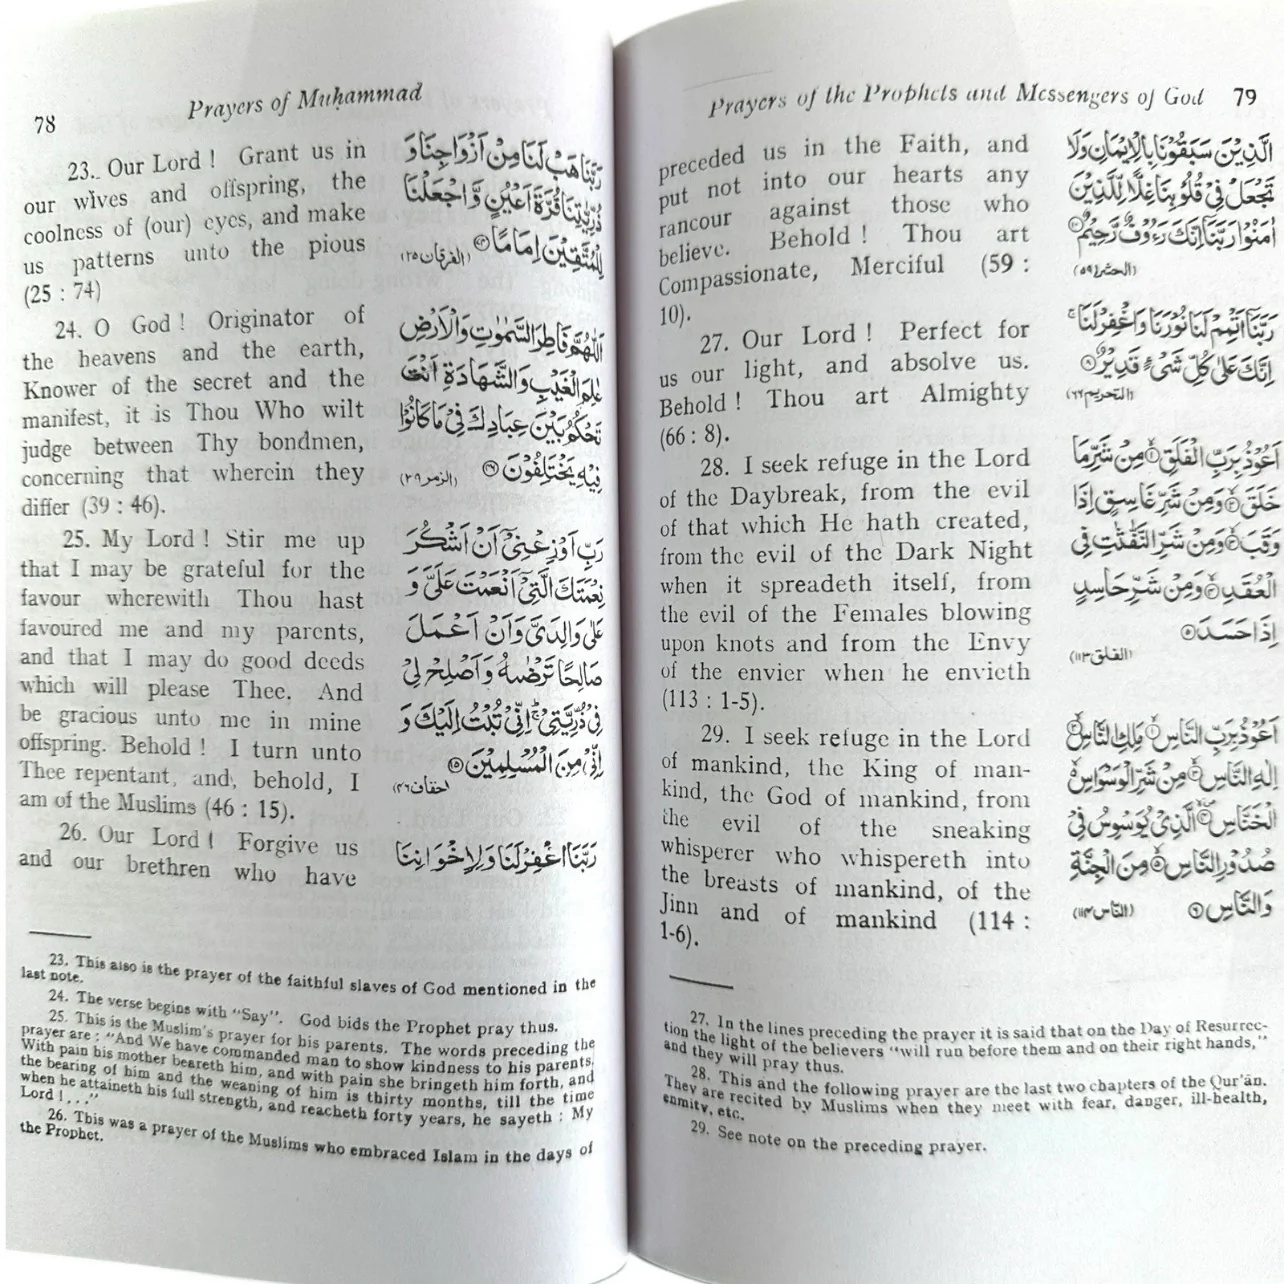 78
Prayers of Muhammad
23. Our Lord ! Grant us in
our wives and offspring, the
coolness of (our) eyes, and make
us patterns unto the pious
(25 : 74)
رَبَّنَا هَبْ لَنَا مِنْ أَزْوَاجِنَا وَ
ذُرِّيّٰتِنَا قُرَّةَ اَعْيُنٍ وَّاجْعَلْنَا
لِلْمُتَّقِيْنَ اِمَامًا (الفرقان ٢٥)
24. O God ! Originator of
the heavens and the earth,
Knower of the secret and the
manifest, it is Thou Who wilt
judge between Thy bondmen,
concerning that wherein they
differ (39 : 46).
اَللّٰهُمَّ فَاطِرَ السَّمٰوٰتِ وَالْاَرْضِ
عٰلِمَ الْغَيْبِ وَالشَّهَادَةِ اَنْتَ
تَحْكُمُ بَيْنَ عِبَادِكَ فِيْ مَا كَانُوْا
فِيْهِ يَخْتَلِفُوْنَ (الزمر ٣٩)
25. My Lord ! Stir me up
that I may be grateful for the
favour wherewith Thou hast
favoured me and my parents,
and that I may do good deeds
which will please Thee. And
be gracious unto me in mine
offspring. Behold ! I turn unto
Thee repentant, and, behold, I
am of the Muslims (46 : 15).
رَبِّ اَوْزِعْنِيْٓ اَنْ اَشْكُرَ
نِعْمَتَكَ الَّتِيْٓ اَنْعَمْتَ عَلَيَّ وَ
عَلٰى وَالِدَيَّ وَاَنْ اَعْمَلَ
صَالِحًا تَرْضٰىهُ وَاَصْلِحْ لِيْ
فِيْ ذُرِّيَّتِيْ اِنِّيْ تُبْتُ اِلَيْكَ وَ
اِنِّيْ مِنَ الْمُسْلِمِيْنَ ۝١٥
احقاف ٤٦)
26. Our Lord ! Forgive us
and our brethren who have
رَبَّنَا اغْفِرْ لَنَا وَلِاِخْوَانِنَا
23. This also is the prayer of the faithful slaves of God mentioned in the
last note.
24. The verse begins with "Say". God bids the Prophet pray thus.
25. This is the Muslim's prayer for his parents. The words preceding the
prayer are : "And We have commanded man to show kindness to his parents.
With pain his mother beareth him, and with pain she bringeth him forth, and
the bearing of him and the weaning of him is thirty months, till the time
when he attaineth his full strength, and reacheth forty years, he sayeth : My
Lord ! . . ."
26. This was a prayer of the Muslims who embraced Islam in the days of
the Prophet.
Prayers of the Prophets and Messengers of God 79
preceded us in the Faith, and
put not into our hearts any
rancour against those who
believe. Behold ! Thou art
Compassionate, Merciful (59 :
10).
الَّذِيْنَ سَبَقُوْنَا بِالْاِيْمَانِ وَلَا
تَجْعَلْ فِيْ قُلُوْبِنَا غِلًّا لِّلَّذِيْنَ
اٰمَنُوْا رَبَّنَا اِنَّكَ رَءُوْفٌ رَّحِيْمٌ
(الحشر ٥٩)
27. Our Lord ! Perfect for
us our light, and absolve us.
Behold ! Thou art Almighty
(66 : 8).
رَبَّنَا اَتْمِمْ لَنَا نُوْرَنَا وَاغْفِرْ لَنَا
اِنَّكَ عَلٰى كُلِّ شَيْءٍ قَدِيْرٌ
(التحريم ٦٦)
28. I seek refuge in the Lord
of the Daybreak, from the evil
of that which He hath created,
from the evil of the Dark Night
when it spreadeth itself, from
the evil of the Females blowing
upon knots and from the Envy
of the envier when he envieth
(113 : 1-5).
اَعُوْذُ بِرَبِّ الْفَلَقِ ۝١ مِنْ شَرِّ مَا
خَلَقَ ۝٢ وَمِنْ شَرِّ غَاسِقٍ اِذَا
وَقَبَ ۝٣ وَمِنْ شَرِّ النَّفّٰثٰتِ فِي
الْعُقَدِ ۝٤ وَمِنْ شَرِّ حَاسِدٍ
اِذَا حَسَدَ ۝٥
(الفلق ١١٣)
29. I seek refuge in the Lord
of mankind, the King of man-
kind, the God of mankind, from
the evil of the sneaking
whisperer who whispereth into
the breasts of mankind, of the
Jinn and of mankind (114 :
1-6).
اَعُوْذُ بِرَبِّ النَّاسِ ۝١ مَلِكِ النَّاسِ ۝٢
اِلٰهِ النَّاسِ ۝٣ مِنْ شَرِّ الْوَسْوَاسِ
الْخَنَّاسِ ۝٤ الَّذِيْ يُوَسْوِسُ فِيْ
صُدُوْرِ النَّاسِ ۝٥ مِنَ الْجِنَّةِ
وَالنَّاسِ ۝٦ (الناس ١١٤)
27. In the lines preceding the prayer it is said that on the Day of Resurrec-
tion the light of the believers "will run before them and on their right hands,"
and they will pray thus.
28. This and the following prayer are the last two chapters of the Qur'ān.
They are recited by Muslims when they meet with fear, danger, ill-health,
enmity, etc.
29. See note on the preceding prayer.